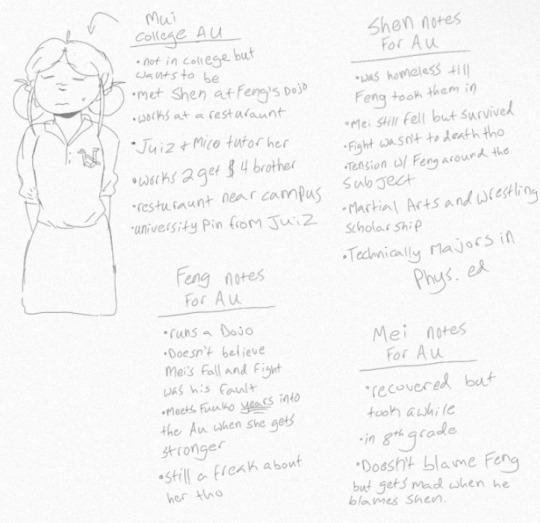 Mui
college AU
• not in college but
wants to be
• met Shen at Feng's Dojo
• works at a resturaunt
• Juiz & Mico tutor her
• works 2 get $ 4 brother
• resturaunt near campus
• university pin from Juiz
Shen notes
For AU
• was homeless till
Feng took them in
• Mei still fell but survived
• Fight wasn't to death tho
• Tension w/ Feng around the
subject
• Martial Arts and Wrestling
scholarship
• Technically Majors in
Phys. ed
Feng notes
For AU
• runs a Dojo
• Doesn't believe
Mei's fall and fight
was his fault
• Meets Fuuko years into
the Au when she gets
stronger
• still a freak about
her tho
Mei notes
For AU
• recovered but
took awhile
• in 8th grade
• Doesn't blame Feng
but gets mad when he
blames Shen.